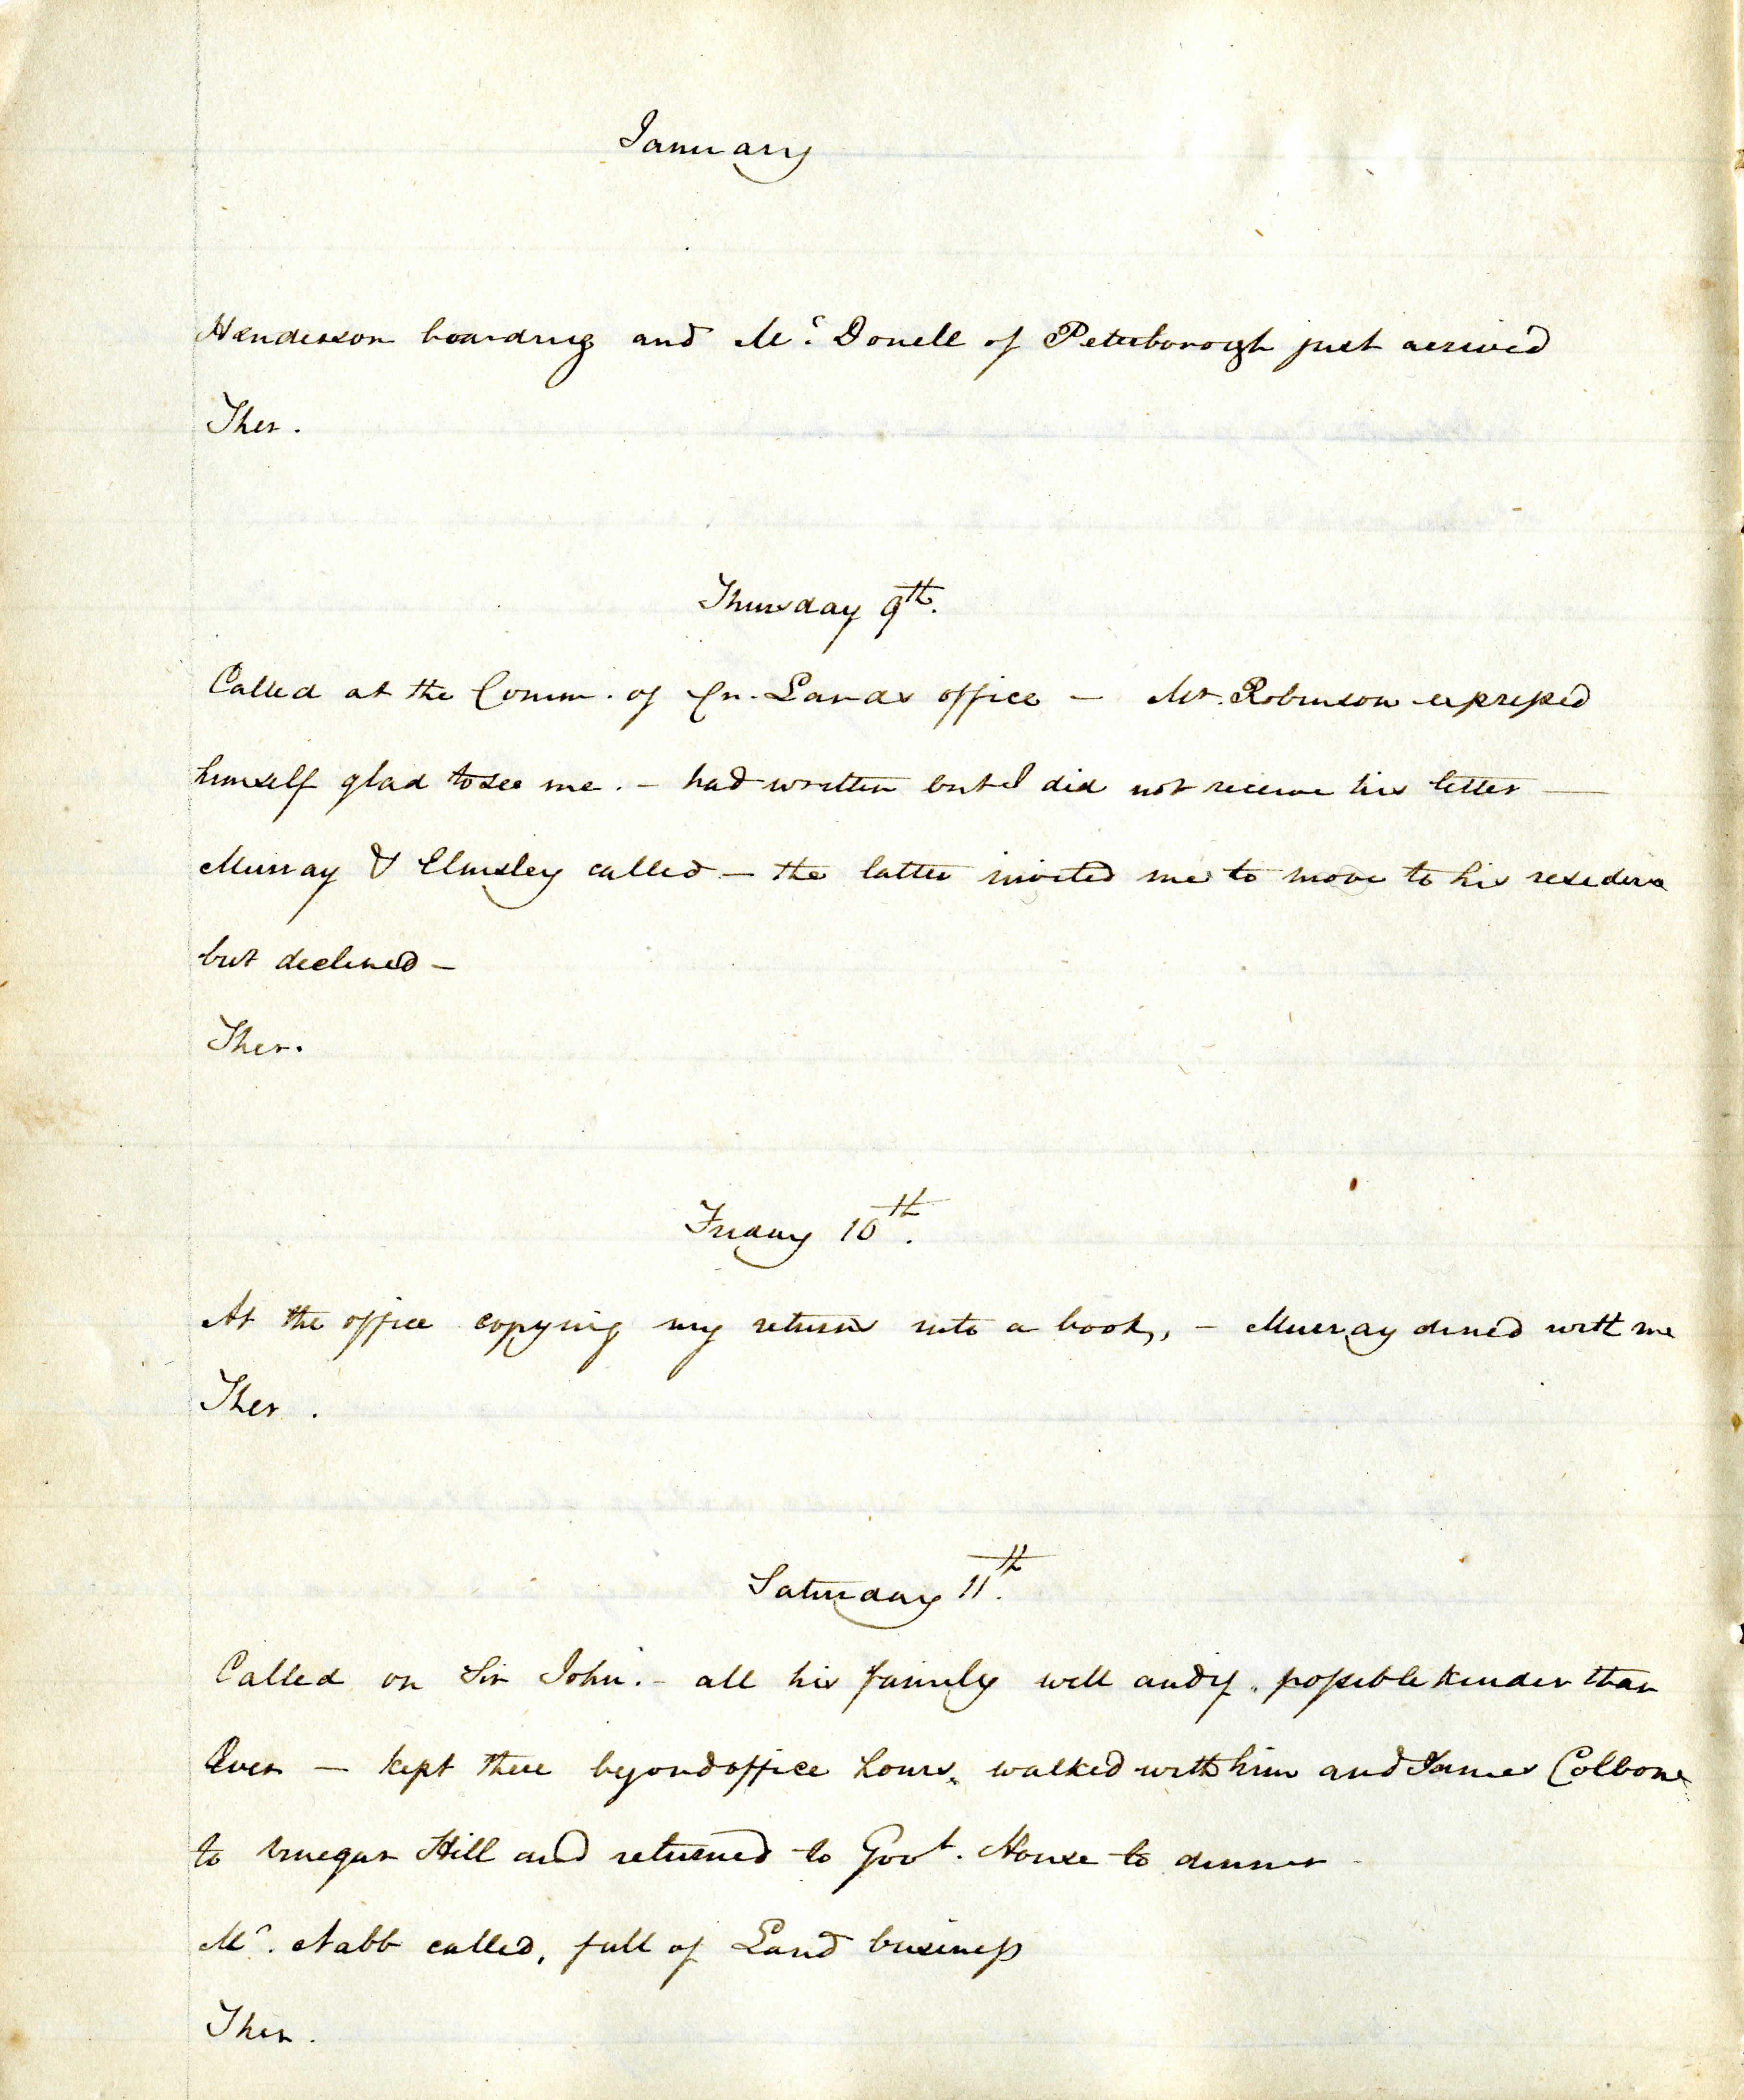 January
Henderson boarding and Mc. Donell of Peterborough just arrived
Ther.
Thursday 9th.
Called at the Comm. of Cn. Lands office – Mr. Robinson expressed
himself glad to see me. – had written but I did not receive his letter —
Murray & Elmsley called – the latter invited me to move to his residence
but declined –
Ther.
Friday 10th.
At the office copying my returns into a book, – Murray dined with me
Ther.
Saturday 11th.
Called on Sir John. – all his family well and if possible kinder than
Ever — kept there beyond office hours, walked with him and James Colborne
to Vinegar Hill and returned to Govt. House to dinner
Mc. Nabb called, full of Land business
Ther.